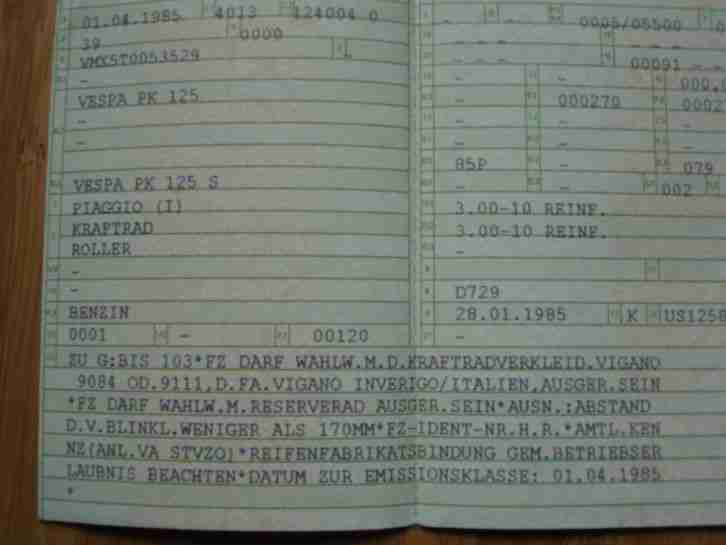 01.04.1985 4013 124004 0
39 0000
VMX5T0053529
-
VESPA PK 125
-
-
VESPA PK 125 S
PIAGGIO (I)
KRAFTRAD
ROLLER
-
-
BENZIN
0001 - 00120
- - 0005/05500
- - -
- - - 00091 - -
- - 000,0
- 000270 0002
- - -
- - -
85P - 079
- - 002
3.00-10 REINF.
3.00-10 REINF.
-
D729
28.01.1985 K US1258
-
ZU G:BIS 103*FZ DARF WAHLW.M.D.KRAFTRADVERKLEID.VIGANO
9084 OD.9111,D.FA.VIGANO INVERIGO/ITALIEN,AUSGER.SEIN
*FZ DARF WAHLW.M.RESERVERAD AUSGER.SEIN*AUSN.:ABSTAND
D.V.BLINKL.WENIGER ALS 170MM*FZ-IDENT-NR.H.R.*AMTL.KEN
NZ(ANL.VA STVZO)*REIFENFABRIKATSBINDUNG GEM.BETRIEBSER
LAUBNIS BEACHTEN*DATUM ZUR EMISSIONSKLASSE: 01.04.1985
*